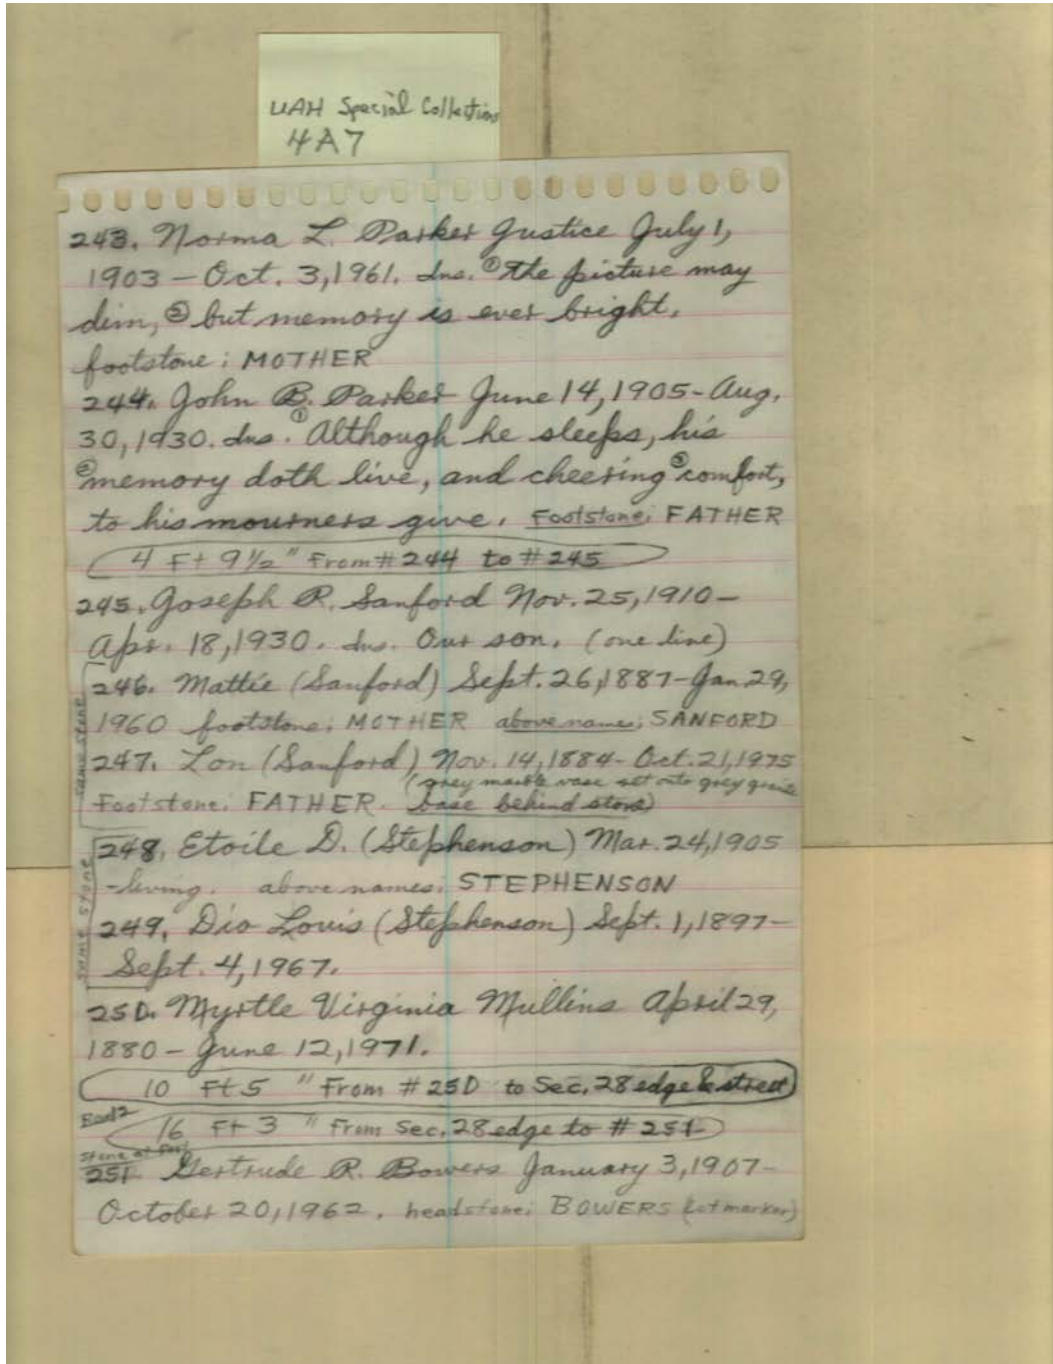 UAH Special Collections
4A7
243. Norma L. Parker Justice July 1,
1903 – Oct. 3, 1961. Ins. ① The picture may
dim, ② but memory is ever bright.
footstone: MOTHER
244. John B. Parker June 14, 1905 - Aug.
30, 1930. Ins. ① Although he sleeps, his
② memory doth live, and cheering ③ comfort,
to his mourners give. Footstone: FATHER
4 Ft 9 1/2 " From # 244 to # 245
245. Joseph R. Sanford Nov. 25, 1910 –
Apr. 18, 1930. Ins. Our son. (one line)
same stone
246. Mattie (Sanford) Sept. 26, 1887 – Jan. 29,
1960 footstone: MOTHER above names: SANFORD
247. Lon (Sanford) Nov. 14, 1884 - Oct. 21, 1975
(grey marble vase set into grey granite
Footstone: FATHER. base behind stone)
same stone
248. Etoile D. (Stephenson) Mar. 24, 1905
- living. above names: STEPHENSON
249. Dio Louis (Stephenson) Sept. 1, 1897 –
Sept. 4, 1967.
250. Myrtle Virginia Mullins April 29,
1880 – June 12, 1971.
10 Ft 5 " From # 250 to Sec. 28 edge & street
16 Ft 3 " From Sec. 28 edge to # 251
stone at foot
251. Gertrude R. Bowers January 3, 1907 –
October 20, 1962. headstone: BOWERS (lot marker)